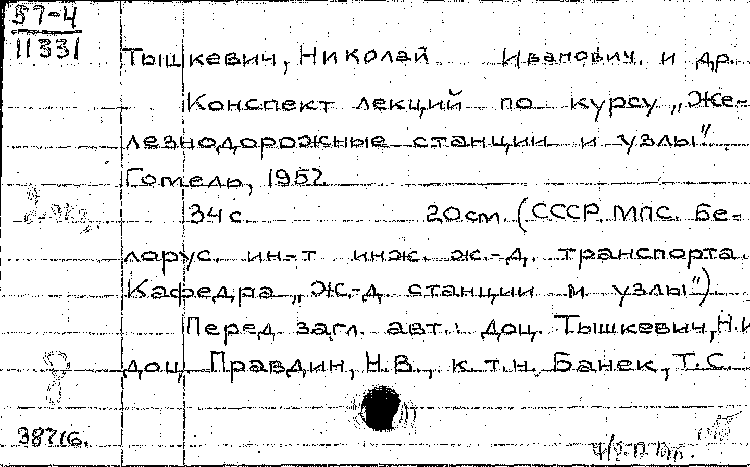 57-4
11331
Тышкевич, Николай Иванович. и др.
Конспект лекций по курсу „Же-
лезнодорожные станции и узлы".
Гомель, 1957
34 с. 20 см. (СССР. МПС. Бе-
лорус. ин-т инж. ж.-д. транспорта.
Кафедра „Ж.-д. станции и узлы").
Перед загл. авт.: доц. Тышкевич, Н.И
доц. Правдин, Н.В., к.т.н. Банек, Т.С.
38716.